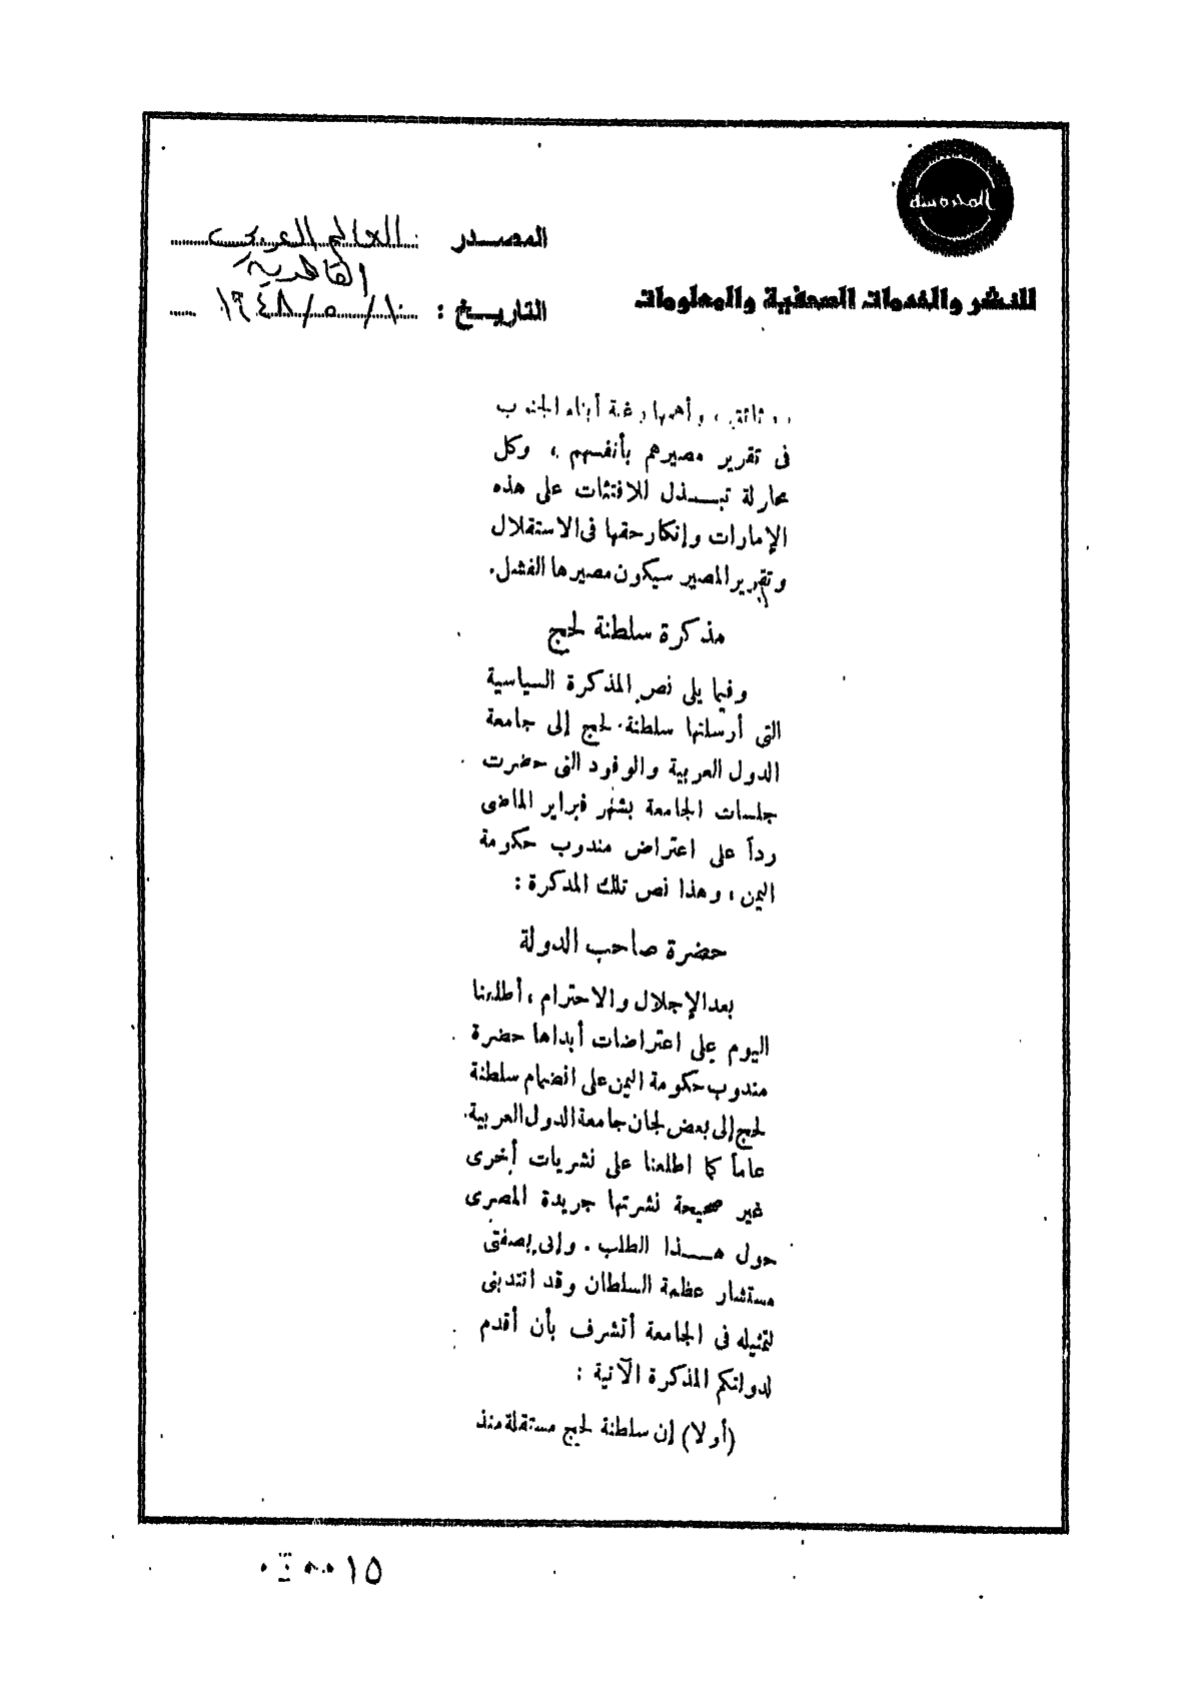 المحروسة
للنشر والخدمات الصحفية والمعلومات
المصدر : العالم العربي
القاهرية
التاريخ : ١٠/٥/١٩٤٨
وأهمها رغبة أبناء الجنوب
فى تقرير مصيرهم بأنفسهم ، وكل
محاولة تبذل للافتئات على هذه
الإمارات وإنكار حقها فى الاستقلال
وتقرير المصير سيكون مصيرها الفشل.
مذكرة سلطنة لحج
وفيما يلى نص المذكرة السياسية
التى أرسلتها سلطنة لحج إلى جامعة
الدول العربية والوفود التى حضرت
جلسات الجامعة بشهر فبراير الماضى
رداً على اعتراض مندوب حكومة
اليمن ، وهذا نص تلك المذكرة :
حضرة صاحب الدولة
بعد الإجلال والاحترام ، أطلعنا
اليوم على اعتراضات أبداها حضرة
مندوب حكومة اليمن على انضمام سلطنة
لحج إلى بعض لجان جامعة الدول العربية.
عاماً كما اطلعنا على نشريات أخرى
غير صحيحة نشرتها جريدة المصرى
حول هذا الطلب . وإنى بصفتى
مستشار عظمة السلطان وقد انتدبنى
لتمثيله فى الجامعة أتشرف بأن أقدم
لدولتكم المذكرة الآتية :
(أولا) إن سلطنة لحج مستقلة منذ